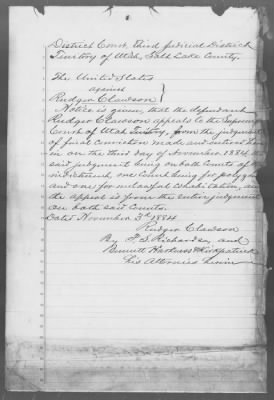 District Court, third judicial District
Territory of Utah, Salt Lake County.
The United States
against
Rudger Clawson
Notice is given, that the defendant
Rudger Clawson appeals to the Supreme
Court of Utah Territory, from the judgment
of final conviction made and entered there
in on the third day of November 1884,
said judgment being on both counts of the
indictment, one count being for polygamy
and one for unlawful cohabitation, and
the appeal is from the entire judgment
on both said Counts.
Dated November 3d 1884
Rudger Clawson
By F. S. Richards, and
Bennett Harkness & Kirkpatrick
his Attornies herein